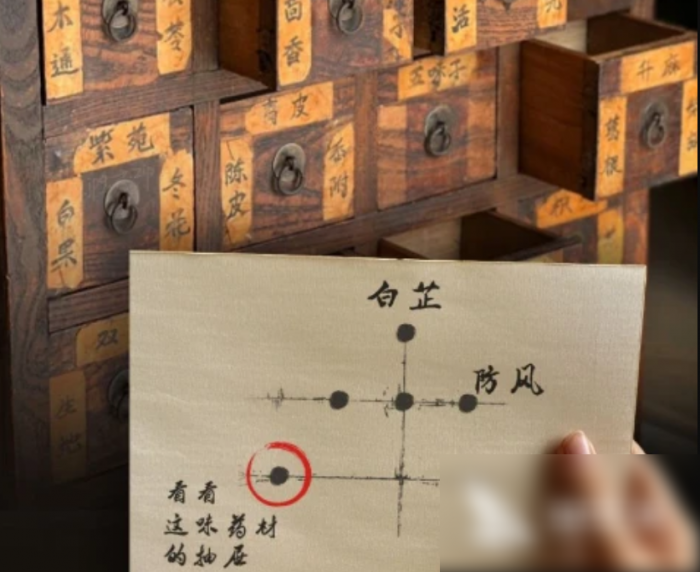 木通
茴香
子
治
升麻
葛根
青皮
陈皮
香附
紫苑
白果
冬花
双
白芷
防风
看看
这味药材
的抽屉